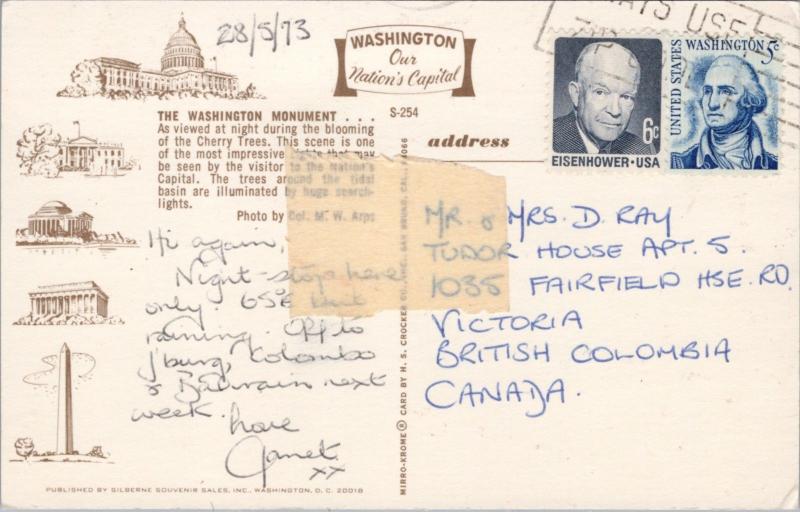 28/5/73
WASHINGTON
Our
Nation's Capital
S-254
THE WASHINGTON MONUMENT . . .
As viewed at night during the blooming
of the Cherry Trees. This scene is one
of the most impressive lights that may
be seen by the visitor to the Nation's
Capital. The trees around the tidal
basin are illuminated by huge search-
lights.
Photo by Col. M. W. Arps
address
6c
EISENHOWER·USA
UNITED STATES
WASHINGTON 5c
Hi again,
Night-stop here
only. 65F but
raining. Off to
J'burg, Colombo
& Bahrain next
week. Love
Janet
xx
MR. & MRS. D. RAY
TUDOR HOUSE APT. 5.
1035 FAIRFIELD HSE. RD.
VICTORIA
BRITISH COLOMBIA
CANADA.
MIRRO-KROME® CARD BY H. S. CROCKER CO., INC., SAN BRUNO, CAL., 94066
PUBLISHED BY GILBERNE SOUVENIR SALES, INC., WASHINGTON, D. C. 20018